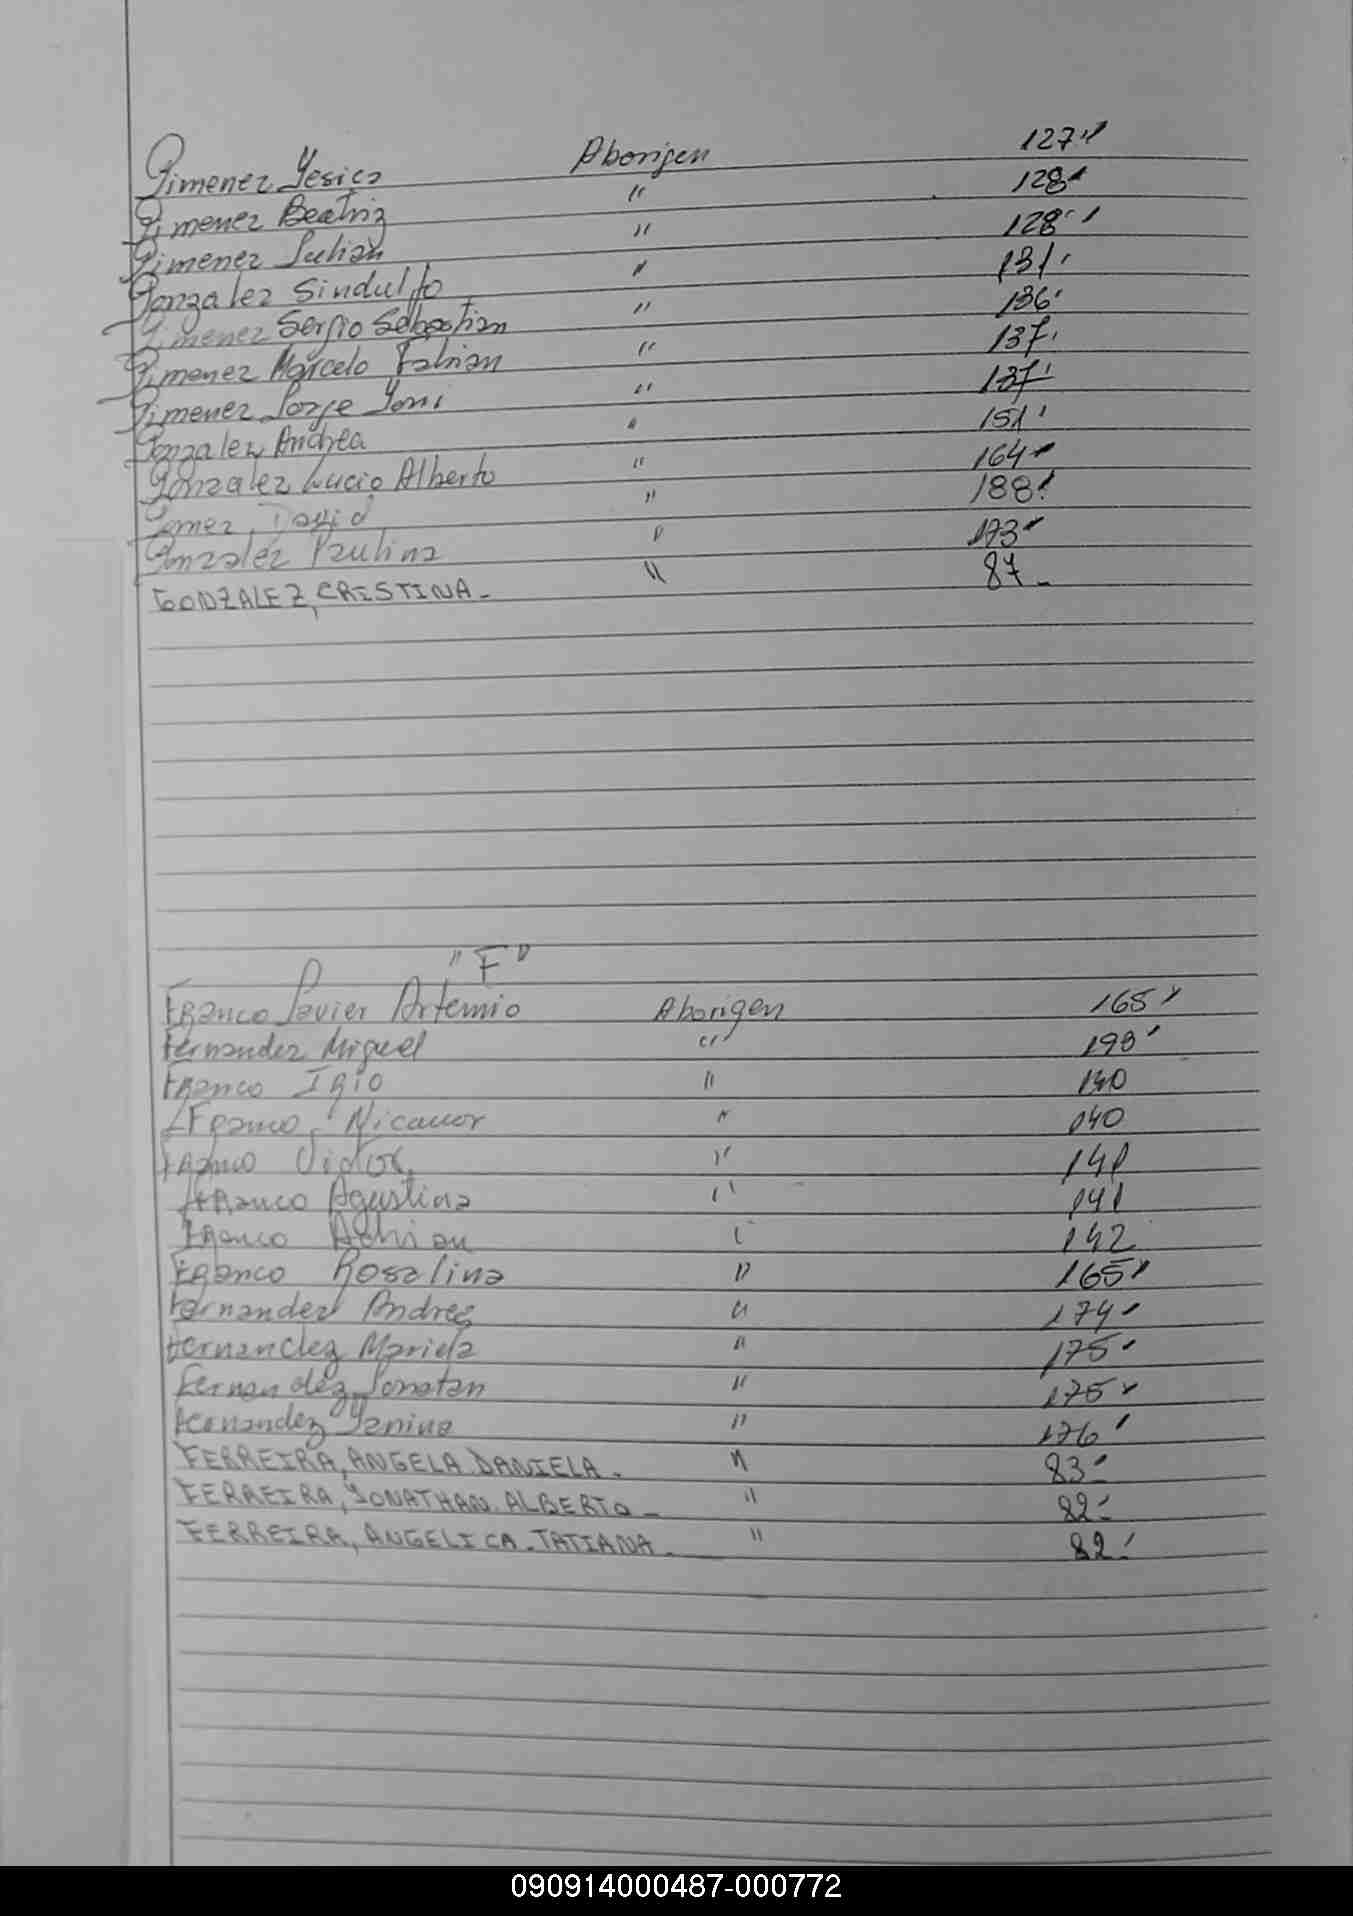 Gimenez Yesica Aborigen 127
Gimenez Beatriz " 128
Gimenez Julian " 128
Gonzalez Sindulfo " 131
Gimenez Sergio Sebastian " 136
Gimenez Marcelo Fabian " 137
Gimenez Jorge Yoni " 137
Gonzalez Andrea " 151
Gonzalez Lucio Alberto " 164
Gomez David " 188
Gonzalez Paulina " 173
GONZALEZ, CRISTINA- " 87-
"F"
Franco Javier Artemio Aborigen 165
Fernandez Miguel " 193
Franco " 140
Franco Nicanor " 140
Franco Victor " 141
Franco Agustina " 141
Franco Adrian " 142
Franco Rosalina " 165
Fernandez Andrea " 174
Fernandez Mariela " 175
Fernandez Jonatan " 175
Fernandez Yanina " 176
FERREIRA, ANGELA DANIELA. " 83-
FERREIRA, JONATHAN ALBERTO- " 82-
FERREIRA, ANGELICA TATIANA- " 82-
090914000487-000772